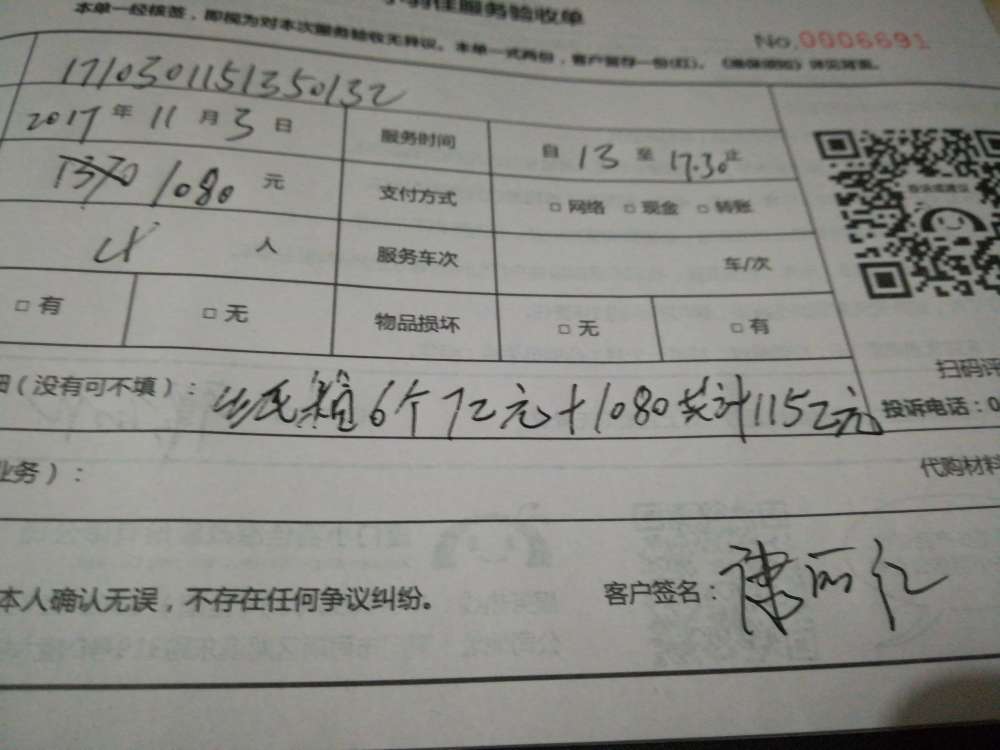 佳服务验收单
本单一经核签，即视为对本次服务验收无异议。本单一式两份，客户留存一份(红)。
No.0006691
1710301151350132
2017年11月3日 服务时间 自13至17.30止
1370 1080元 支付方式 □网络 □现金 □转账
4人 服务车次 车/次
□有 □无 物品损坏 □无 □有
扫码评
细（没有可不填）：纸箱6个72元+1080共计1152元
投诉电话：0
业务）： 代购材料
本人确认无误，不存在任何争议纠纷。 客户签名：